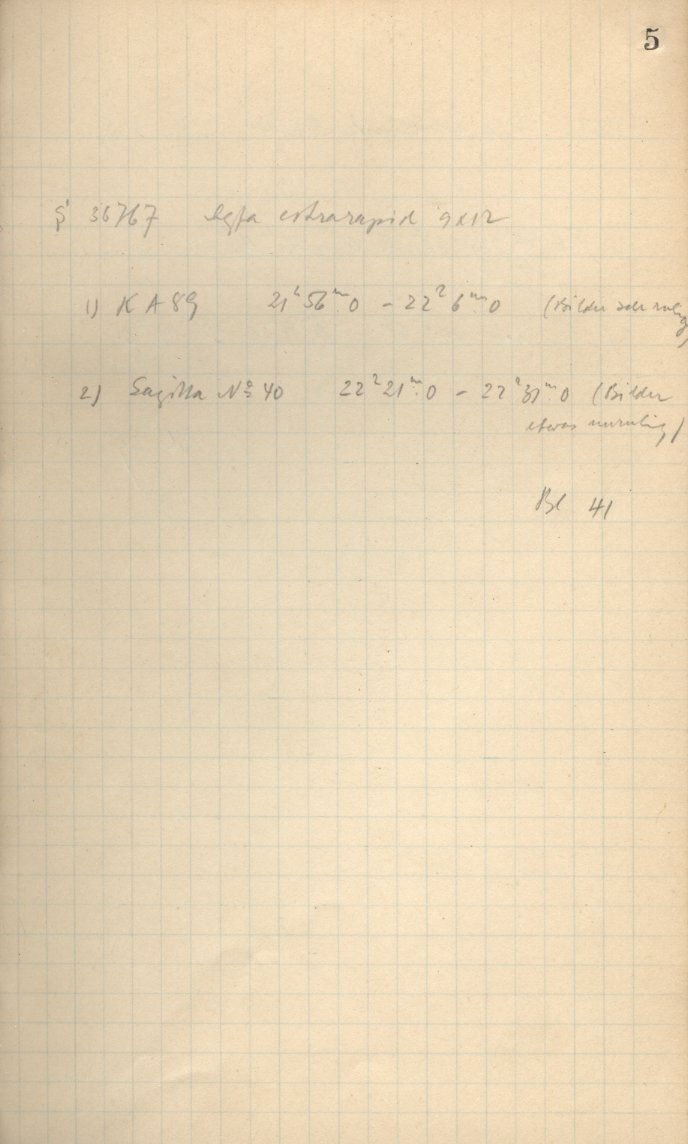 5
36767 Agfa extrarapid 9x12
1) KA 89 21ʰ56ᵐ.0 – 22ʰ6ᵐ.0 (Bilder sehr ruhig)
2) Sagitta Nº 40 22ʰ21ᵐ.0 – 22ʰ31ᵐ.0 (Bilder
etwas unruhig)
Bl 41